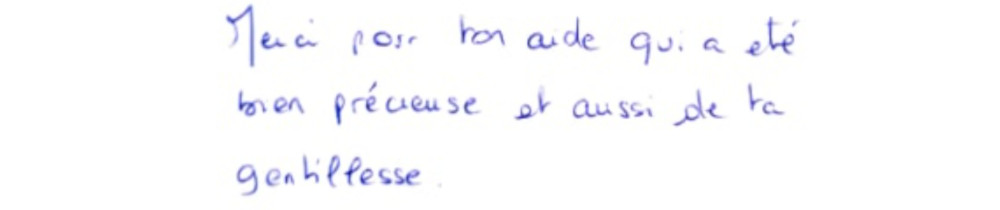 Merci pour ton aide qui a été
bien précieuse et aussi de ta
gentillesse.